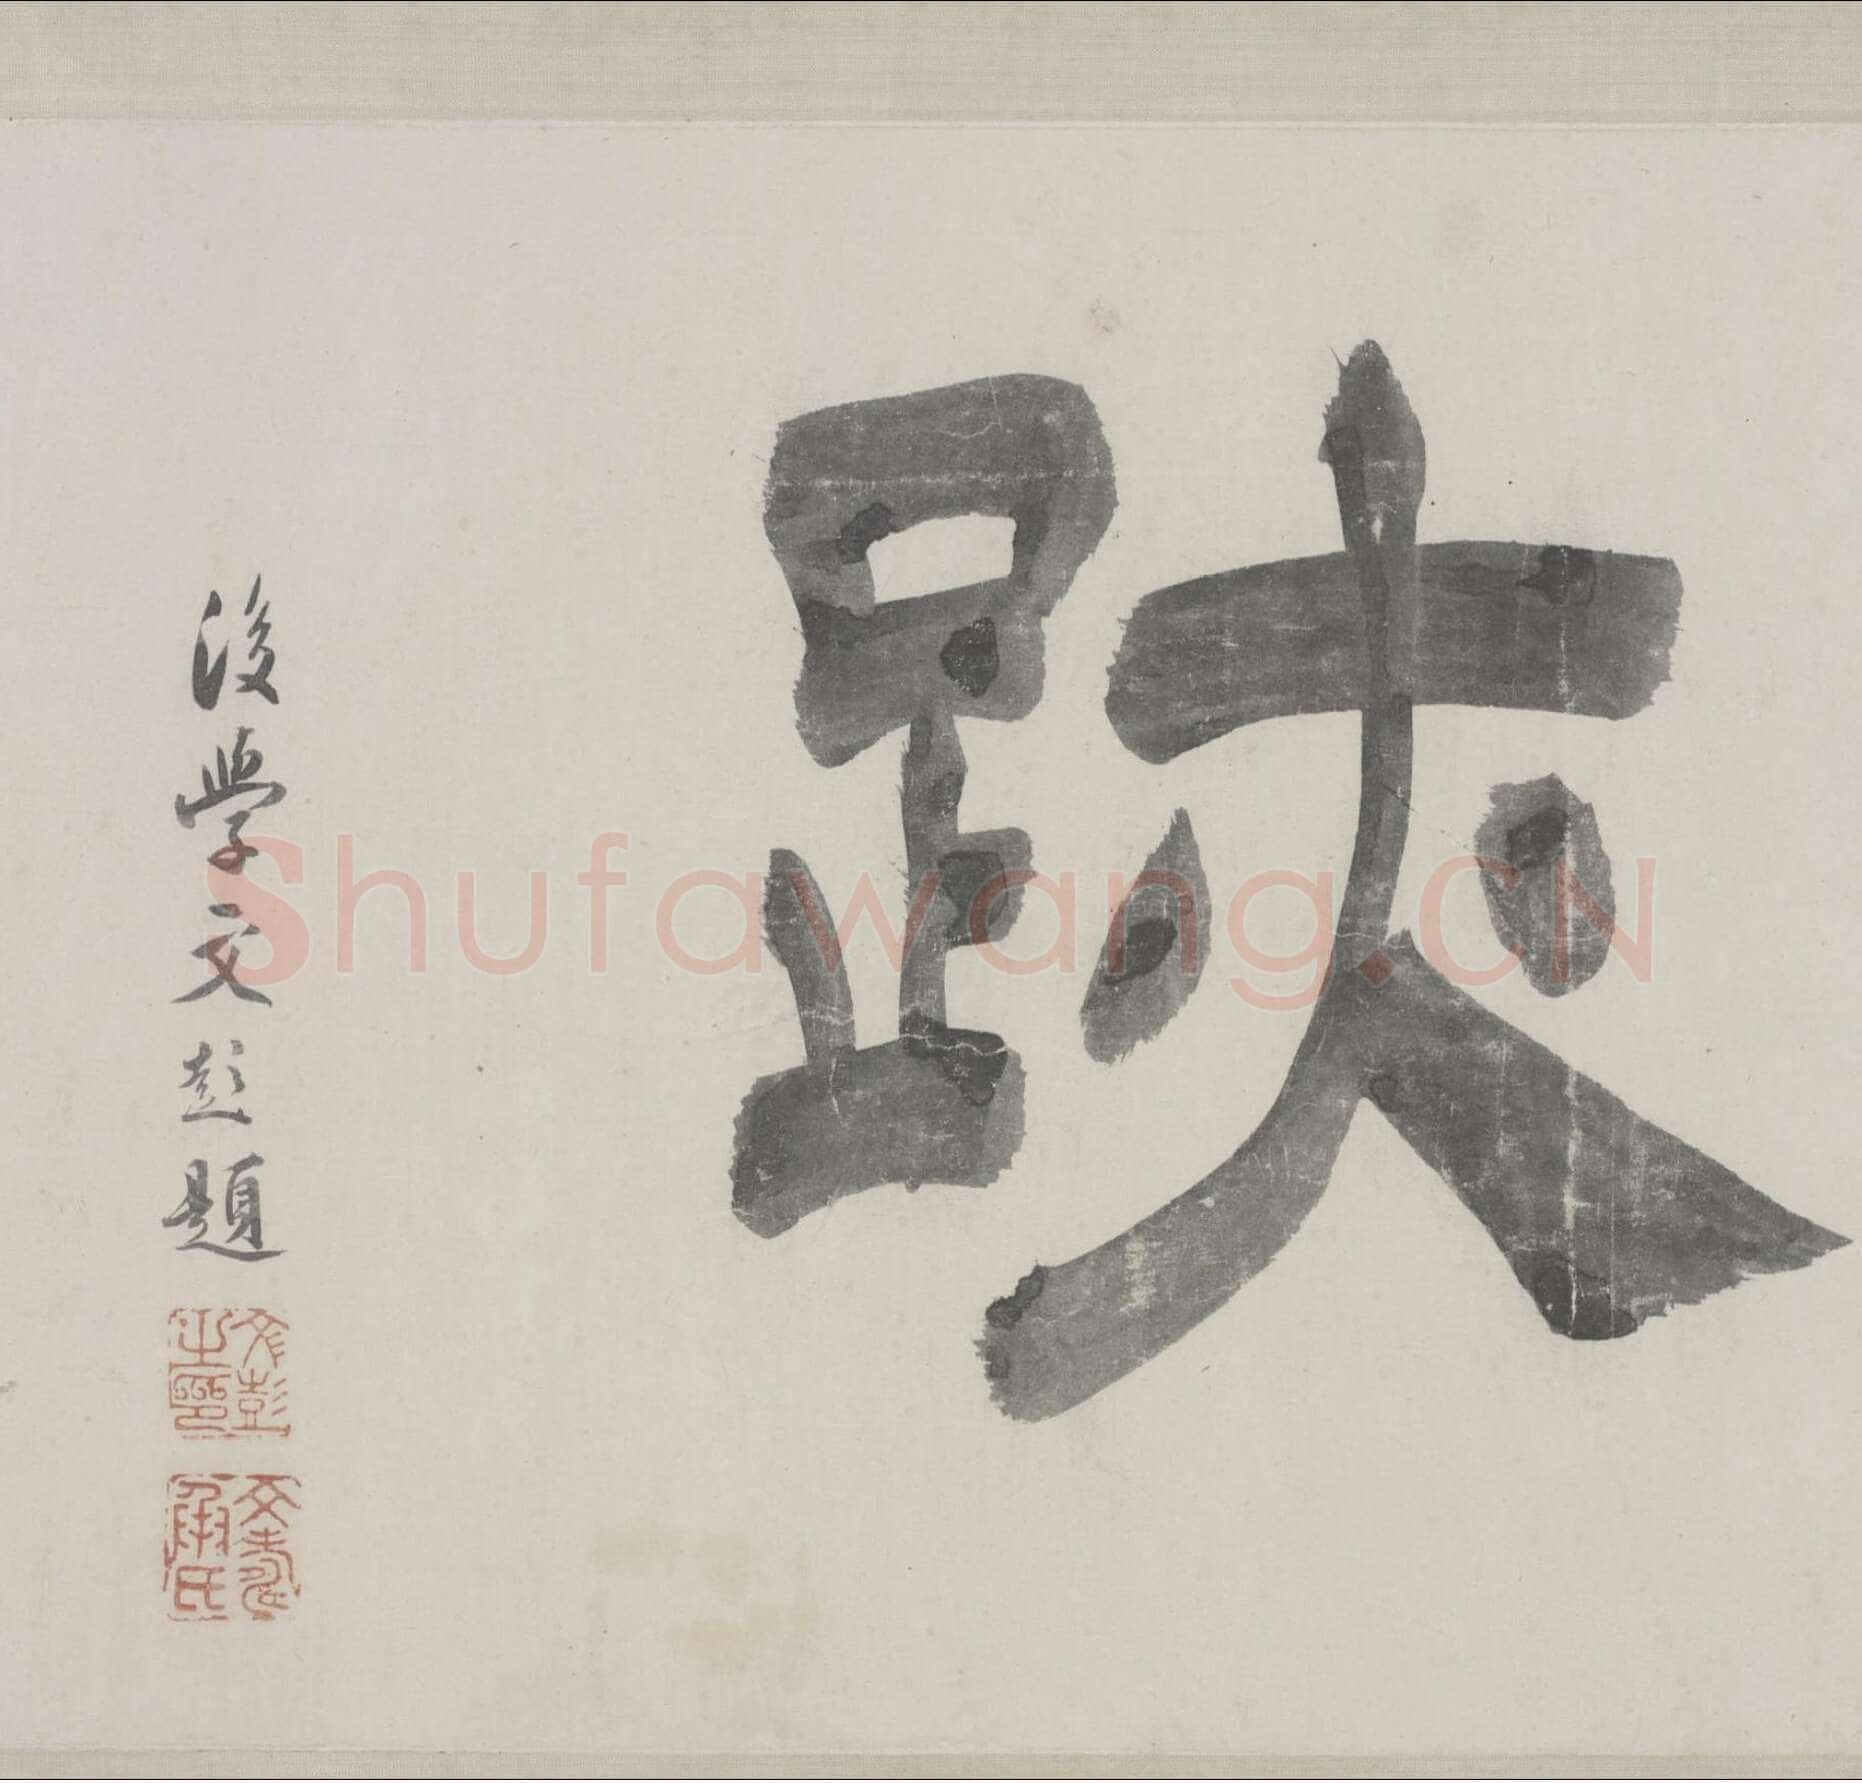 跡
後學文彭題
文彭之印
文壽承氏
Shufawang.CN